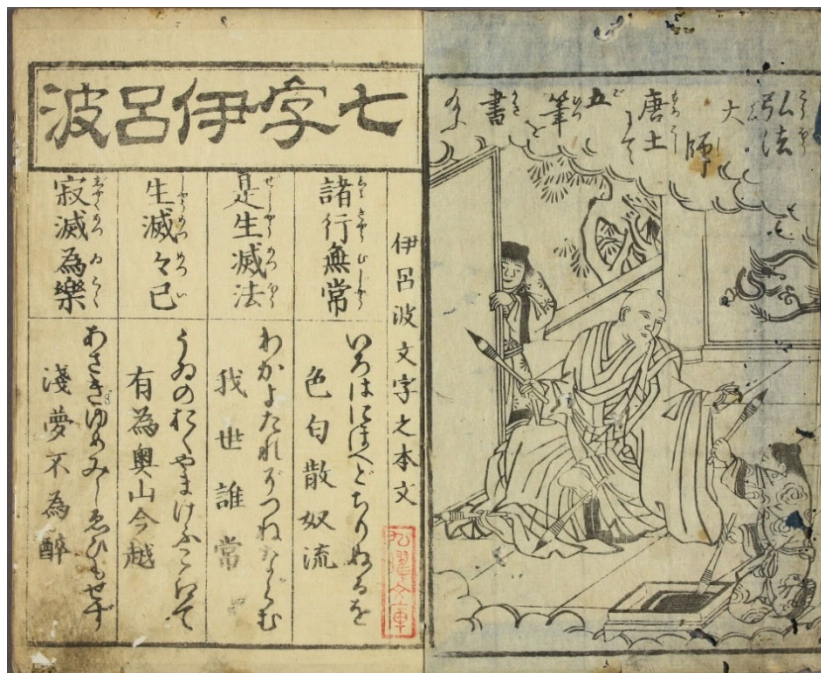 弘法
大師
唐土
にて
五筆
を
書
七字伊呂波
伊呂波文字之本文
九曜文庫
諸行無常
いろはにほへどちりぬるを
色匂散奴流
是生滅法
わかよたれぞつねならむ
我世誰常
生滅々已
うゐのおくやまけふこえて
有為奥山今越
寂滅為樂
あさきゆめみしゑひもせず
淺夢不為醉